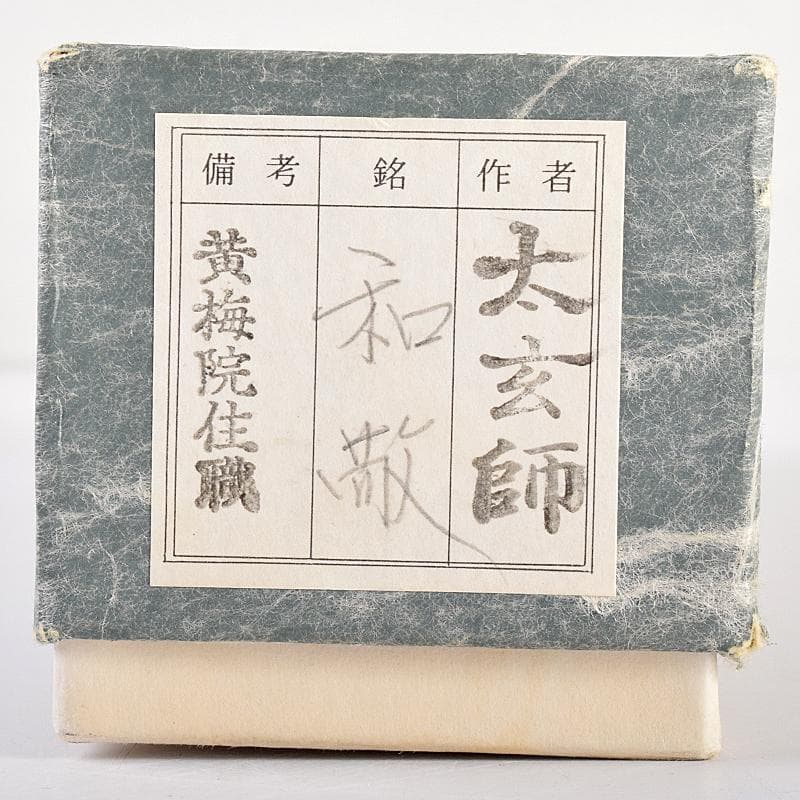 作者
太玄師
銘
和敬
備考
黄梅院住職